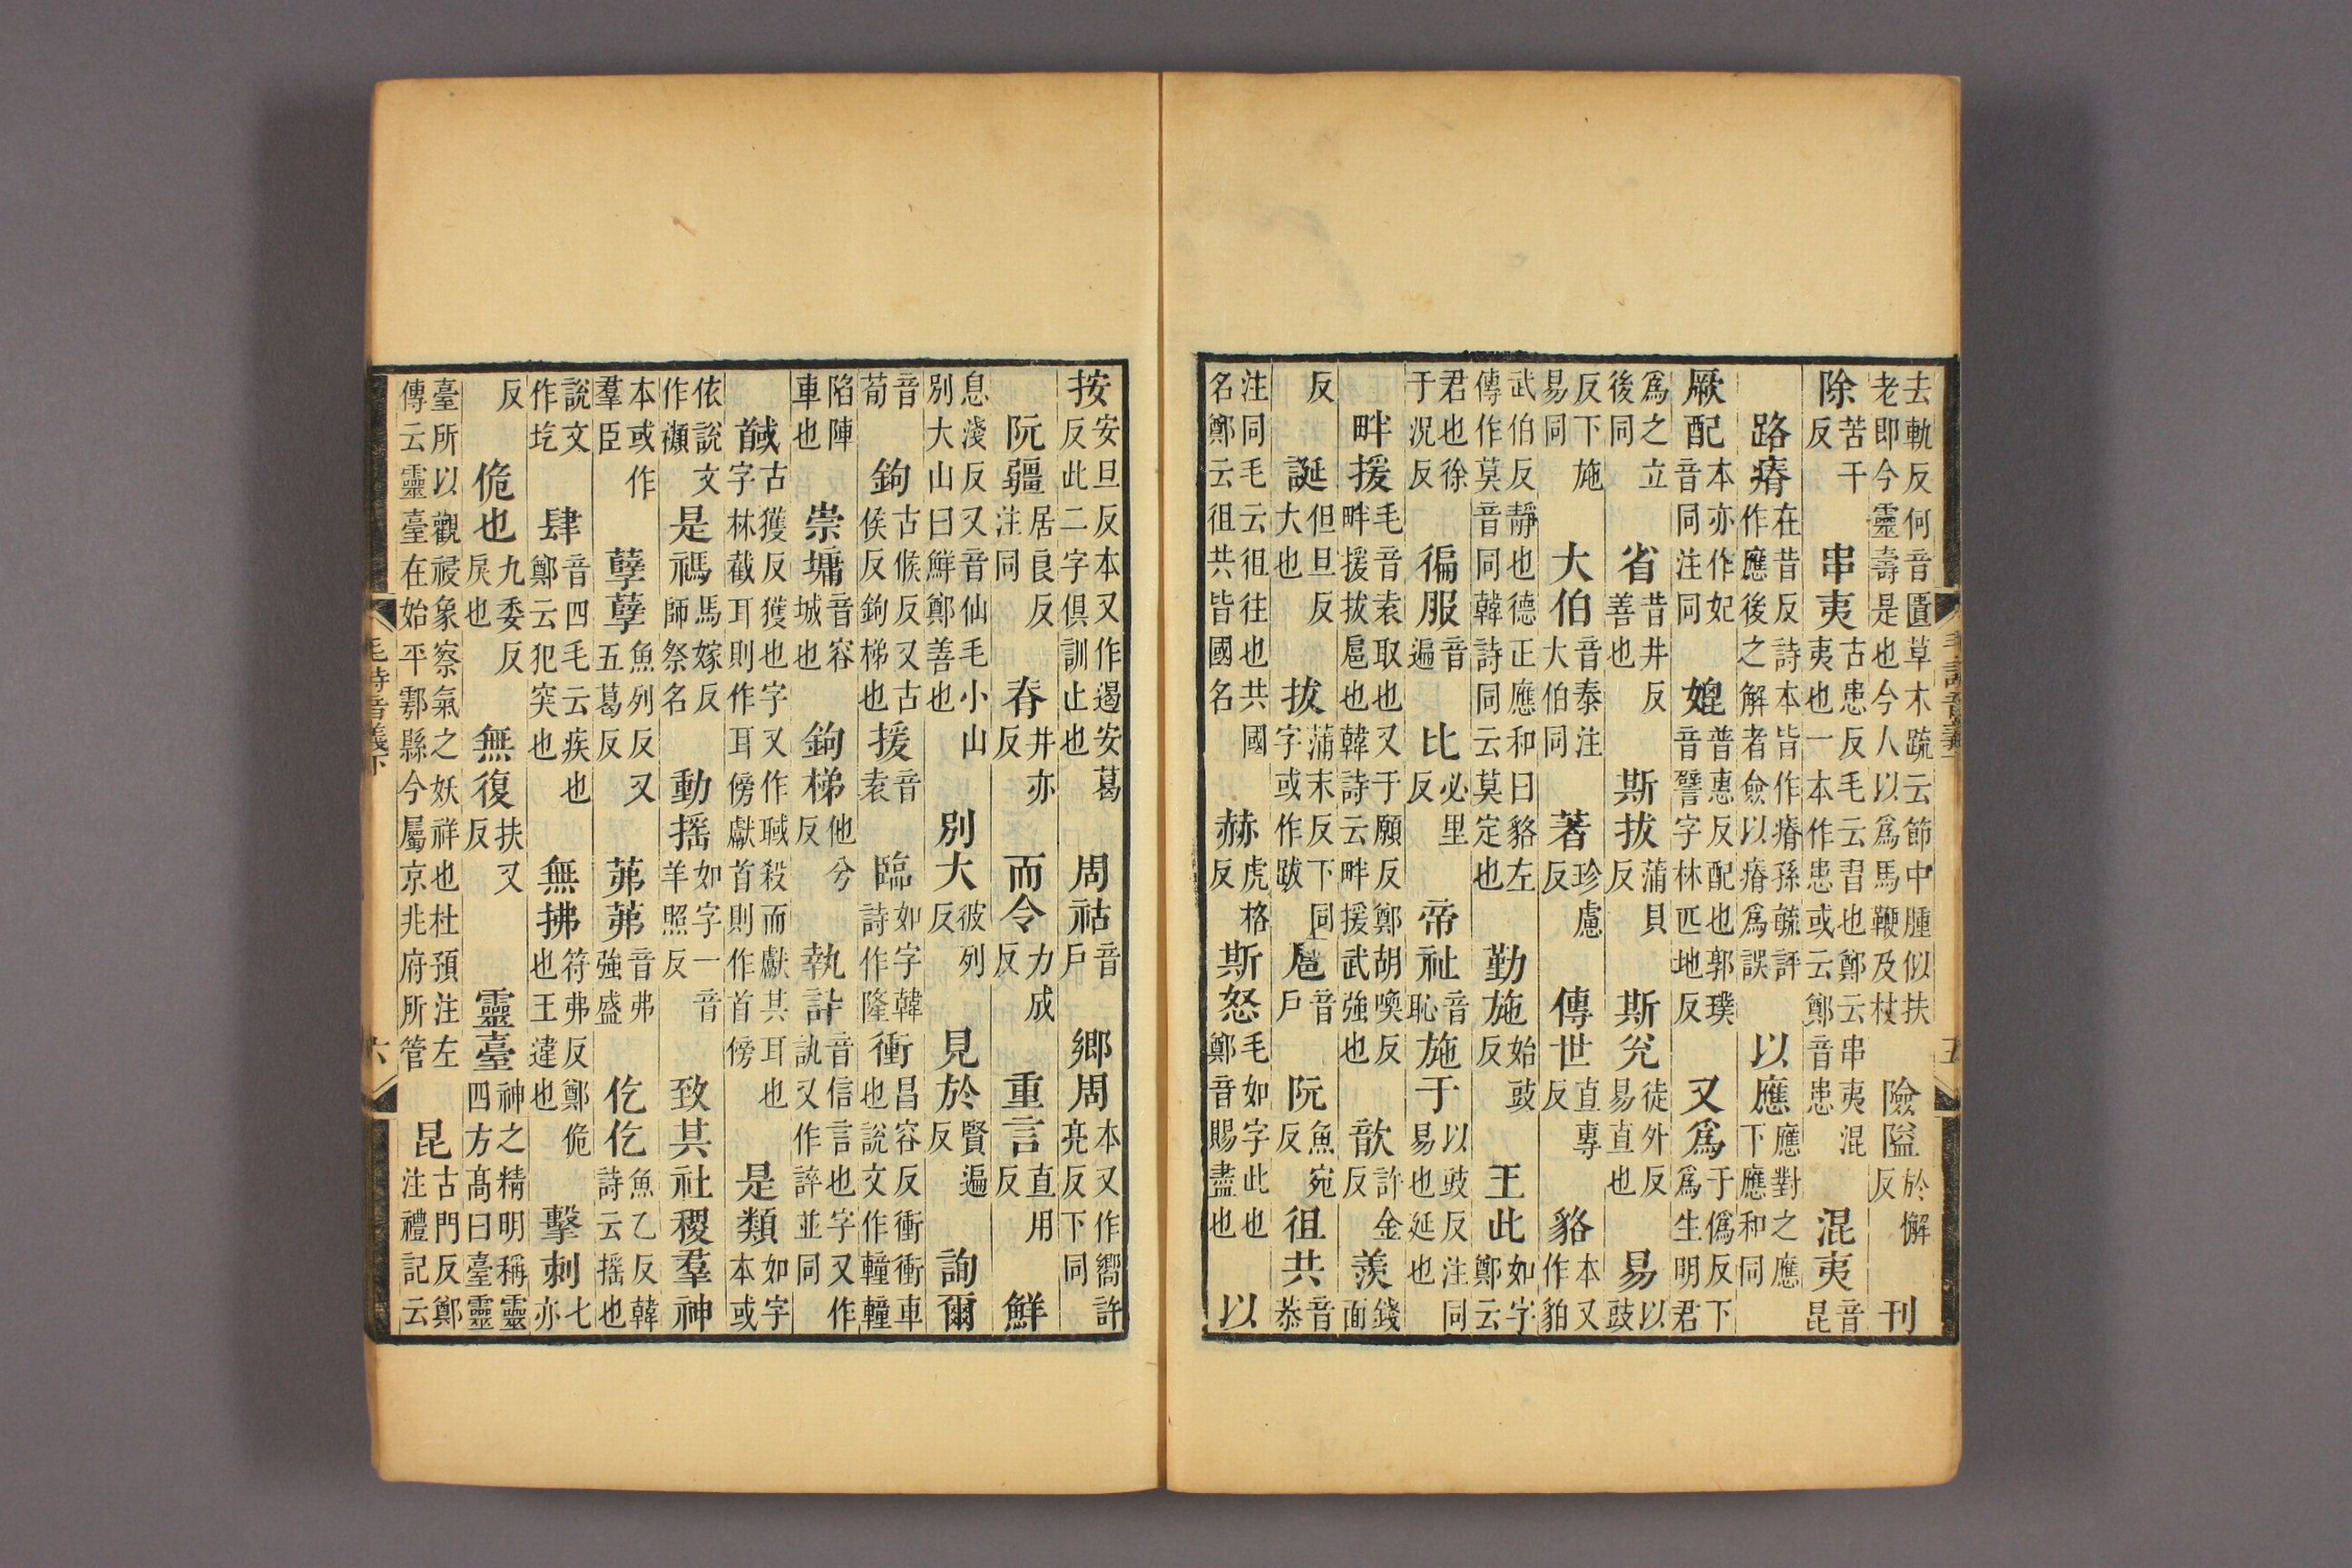 去軌反何音匱草木疏云節中腫似扶老即今靈壽是也今人以爲馬鞭及杖險隘於懈反刊
除苦干反串夷古患反毛云習也鄭云串夷混夷也一本作患或云鄭音患混夷音昆
路瘠在昔反詩本皆作瘠孫毓評作應後之解者僉以瘠爲誤以應應對之應下應和同
厥配本亦作妃音同注同媲普惠反配也郭璞音譬字林匹地反又爲于僞反下爲生明君
爲之立後同省昔井反善也斯拔蒲貝反斯兊徒外反易直也易以豉
反下施易同大伯音泰注大伯同著珍慮反傳世直專反貉本又作貃
武伯反靜也德正應和曰貉左傳作莫音同韓詩同云莫定也勤施始豉反王此如字鄭云
君也徐于況反徧服音遍比必里反帝祉音恥施于以豉反注同易也延也
畔援毛音袁取也又于願反鄭胡喚反畔援拔扈也韓詩云畔援武強也歆許金反羨錢面
反誕但旦反大也拔蒲末反下同字或作跋扈音戶阮魚宛反徂共音恭
注同毛云徂往也共國名鄭云徂共皆國名赫虎格反斯怒毛如字此也鄭音賜盡也以
毛詩音義下
五
按安旦反本又作遏安葛反此二字俱訓止也周祜音戶鄉周本又作嚮許亮反下同
阮疆居良反注同脊井亦反而令力成反重言直用反鮮
息淺反又音仙毛小山別大山曰鮮鄭善也別大彼列反見於賢遍反詢爾
音荀鉤古候反又古侯反鉤梯也援音袁臨如字韓詩作隆衝昌容反衝衝車也說文作䡴䡴
陷陣車也崇墉音容城也鉤梯他兮反執訊音信言也字又作訙又作誶並同
馘古獲反獲也字又作聝殺而獻其耳也字林截耳則作耳傍獻首則作首傍是類如字本或
依說文作禷是禡馬嫁反師祭名動摇如字一音羊照反致其社稷羣神
本或作羣臣孽孽魚列反又五葛反茀茀音弗強盛仡仡魚乙反韓詩云摇也
說文作圪肆音四毛云疾也鄭云犯突也無拂符弗反鄭佹也王違也擊刺七亦
反佹也九委反戾也無復扶又反靈臺神之精明稱靈四方髙曰臺靈
臺所以觀祲象察氣之妖祥也杜預注左傳云靈臺在始平鄠縣今屬京兆府所管昆古門反鄭注禮記云
毛詩音義下
六